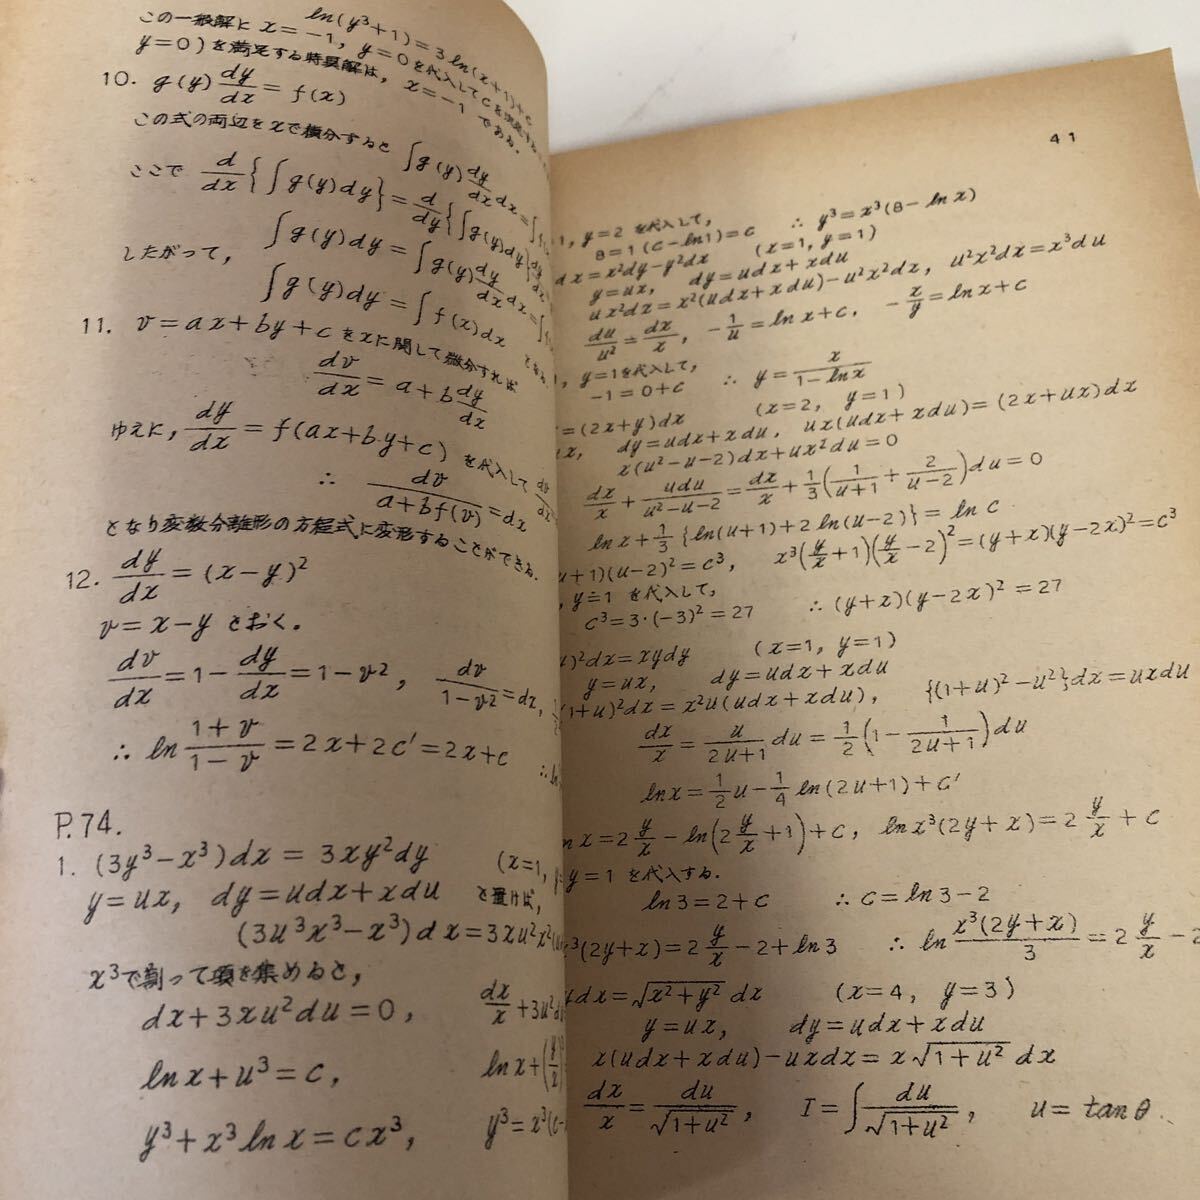 ln(y³+1)=3ln(x+1)+c
この一般解に x=-1, y=0を代入してcを
y=0)を満足する特異解は, x=-1 である.
10. g(y) dy/dx = f(x)
この式の両辺をxで積分すると ∫g(y) dy/dx dx=∫
ここで d/dx{∫g(y)dy}= d/dy{∫g(y)dy} dy/dx
したがって, ∫g(y)dy=∫g(y) dy/dx dx=∫
∫g(y)dy=∫f(x)dx となる.
11. v=ax+by+c をxに関して微分すれば
dv/dx = a+b dy/dx
ゆえに, dy/dx = f(ax+by+c) を代入して dv/dx=
∴ dv/(a+bf(v)) = dx
となり変数分離形の方程式に変形することができる.
12. dy/dx = (x-y)²
v=x-y とおく.
dv/dx = 1- dy/dx = 1-v², dv/(1-v²) = dx,
∴ ln (1+v)/(1-v) = 2x+2c'=2x+c
P.74.
1. (3y³-x³)dx = 3xy²dy (x=1,
y=ux, dy=udx+xdu と置けば,
(3u³x³-x³)dx=3xu²x²(u
x³で割って項を集めると,
dx+3xu²du=0, dx/x +3u²du
ln x+u³=c, ln x+(y/x)
y³+x³ ln x=cx³, y³=x³(c-
41
1, y=2 を代入して,
8=1(c-ln1)=c ∴ y³=x³(8-ln x)
dx=x²dy-y²dx (x=1, y=1)
y=ux, dy=udx+xdu
ux²dx=x²(udx+xdu)-u²x²dx, u²x²dx=x³du
du/u² = dx/x, -1/u = ln x+c, -x/y = ln x+c
, y=1を代入して,
-1=0+c ∴ y= x/(1-ln x)
=(2x+y)dx (x=2, y=1)
x, dy=udx+xdu, ux(udx+xdu)=(2x+ux)dx
x(u²-u-2)dx+ux²du=0
dx/x + udu/(u²-u-2) = dx/x + 1/3(1/(u+1) + 2/(u-2))du=0
ln x+1/3{ln(u+1)+2 ln(u-2)}= ln c
u+1)(u-2)²=c³, x³(y/x+1)(y/x-2)²=(y+x)(y-2x)²=c³
, y=1 を代入して,
c³=3·(-3)²=27 ∴ (y+x)(y-2x)²=27
)²dx=xydy (x=1, y=1)
y=ux, dy=udx+xdu
(1+u)²dx=x²u(udx+xdu), {(1+u)²-u²}dx=uxdu
dx/x = u/(2u+1) du = 1/2(1- 1/(2u+1))du
ln x= 1/2 u- 1/4 ln(2u+1)+c'
ln x=2 y/x - ln(2 y/x +1)+c, ln x³(2y+x)=2 y/x +c
y=1 を代入する.
ln 3=2+c ∴ c=ln 3-2
³(2y+x)=2 y/x -2+ln 3 ∴ ln x³(2y+x)/3 =2 y/x -2
ydx=√(x²+y²) dx (x=4, y=3)
y=ux, dy=udx+xdu
x(udx+xdu)-uxdx=x√(1+u²) dx
dx/x = du/√(1+u²), I=∫ du/√(1+u²), u=tanθ.